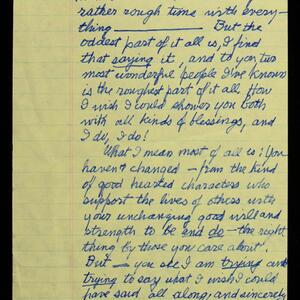 rather rough time with every-
thing — But the
oddest part of it all is, I find
that saying it, and to you two
most wonderful people I've known
is the roughest part of it all. How
I wish I could shower you both
with all kinds of blessings, and
I do, I do!
What I mean most of all is: You
haven't changed — from the kind
of good hearted characters who
support the lives of others with
your unchanging good will and
strength to be and do — the right
thing by those you care about.
But — you see I am trying and
trying to say what I wish I could
have said all along and sincerely